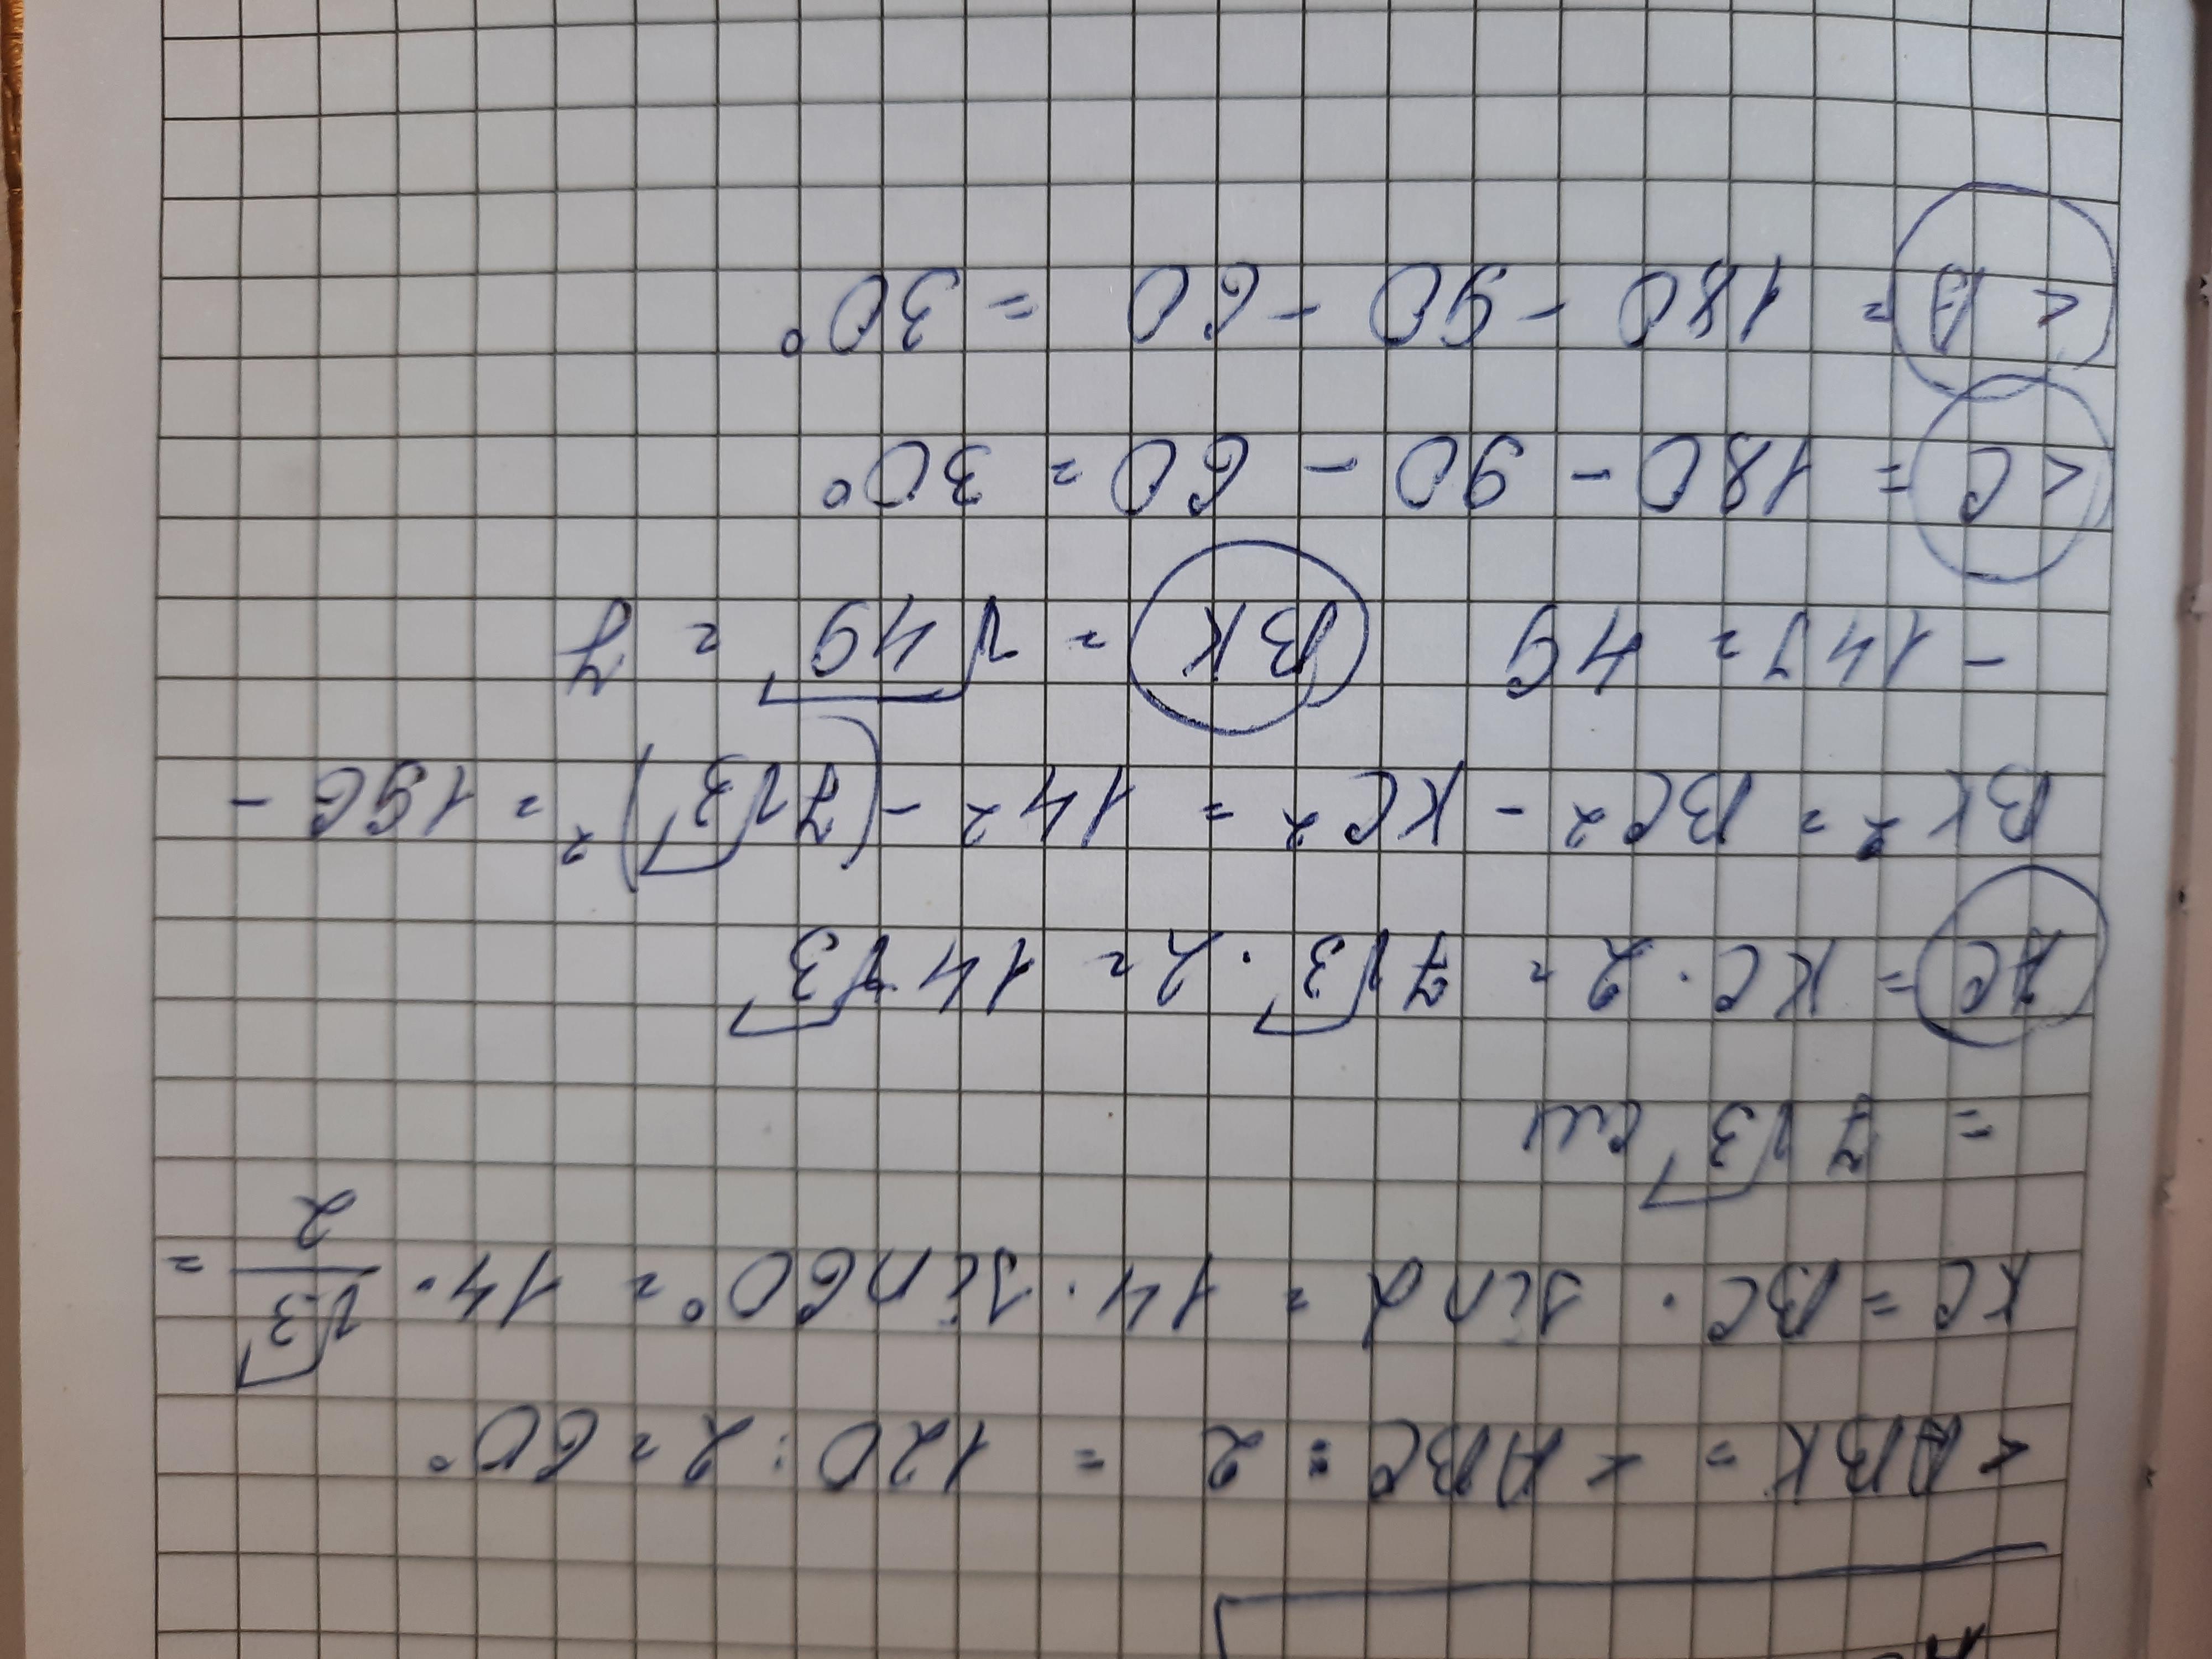 <ABK = <ABC : 2 = 120 : 2 = 60°
KC = BC · sinα = 14 · sin60° = 14 · √3/2 =
= 7√3 см
AC = KC · 2 = 7√3 · 2 = 14√3
BK² = BC² - KC² = 14² - (7√3)² = 196 -
- 147 = 49 BK = √49 = 7
<C = 180 - 90 - 60 = 30°
<A = 180 - 90 - 60 = 30°